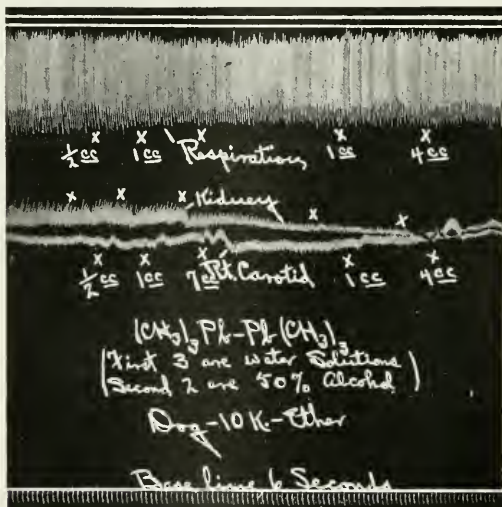 x x \ x x x
½ cc 1 cc Respiration 1 cc 4 cc
x x x Kidney x x
x x x x x
½ cc 1 cc 7 cc Rt. Carotid 1 cc 4 cc
(CH₃)₃ Pb–Pb (CH₃)₃
(First 3 are water Solutions
Second 2 are 50% Alcohol)
Dog–10 K.–Ether
Base line 6 Seconds